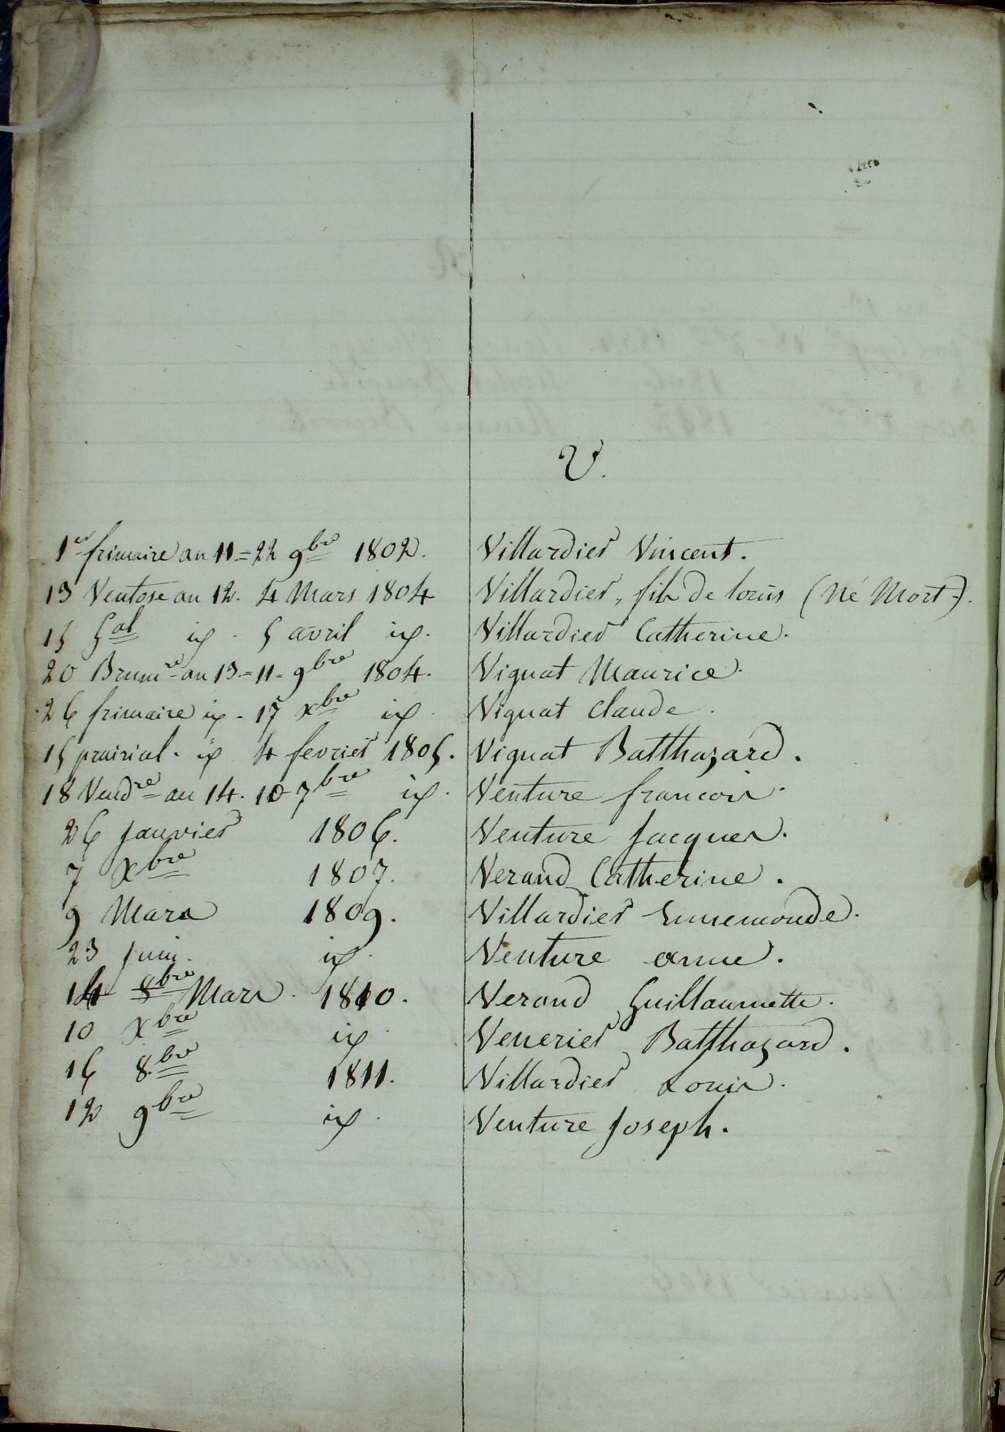 V.
1er frimaire an 11 = 22 9bre 1802. Villardier Vincent.
13 Ventose an 12. 4 Mars 1804 Villardier, fils de louis (Né Mort).
15 Gal id. 5 avril id. Villardier Catherine.
20 Brumre an 13. = 11 - 9bre 1804. Vignat Maurice.
26 frimaire id - 17 xbre id. Vignat Claude.
15 prairial. id 4 fevrier 1805. Vignat Balthazard.
18 Vendre an 14. 10 7bre id. Venture francois.
26 Janvier 1806. Venture Jacques.
7 Xbre 1807. Verand Catherine.
9 Mars 1809. Villardier Ennemonde.
23 Juin. id. Venture anne.
14 8bre Mars. 1810. Verand Guillaumette.
10 Xbre id. Venerier Balthazard.
16 8bre 1811. Villardier Louis.
12 9bre id. Venture Joseph.